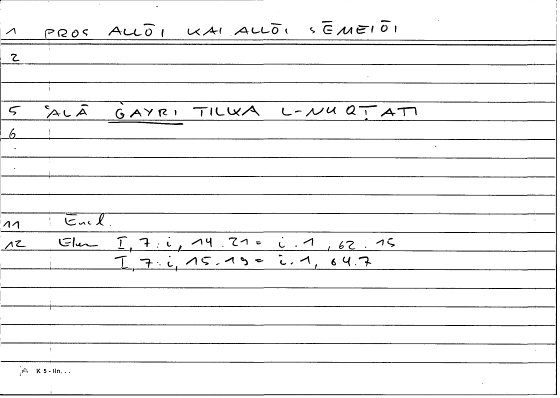 1 PROS ALLŌI KAI ALLŌI SĒMEIŌI
2
5 ʿALĀ ĠAYRI TILKA L-NUQṬATI
6
11 Eucl.
12 Elem I, 7: i, 14.21 = i.1, 62.15
I, 7: i, 15.19 = i.1, 64.7
K 5 - IIn...